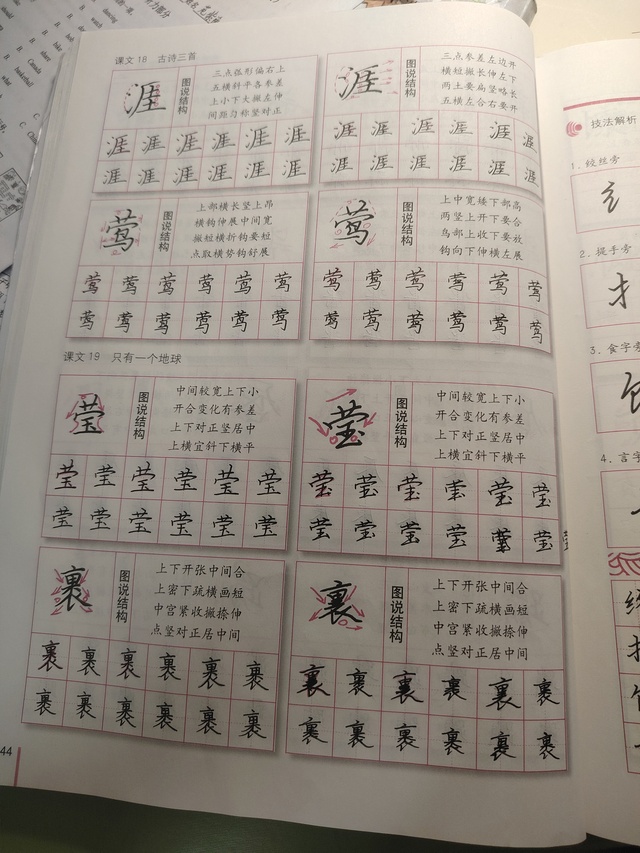 课文 18 古诗三首
涯
图说结构
三点弧形偏右上
五横斜平各参差
上小下大撇左伸
间距匀称竖对正
涯 涯 涯 涯 涯 涯
涯 涯 涯 涯 涯 涯
涯
图说结构
三点参差左边弁
横短撇长伸左下
两土要扁竖略长
五横左合右要开
涯 涯 涯 涯 涯 涯
涯 涯 涯 涯 涯 涯
莺
图说结构
上部横长竖上昂
横钩伸展中间宽
撇短横折钩要短
点取横势钩舒展
莺 莺 莺 莺 莺 莺
莺 莺 莺 莺 莺 莺
莺
图说结构
上中宽矮下部高
两竖上开下要合
鸟部上收下要放
钩向下伸横左展
莺 莺 莺 莺 莺 莺
莺 莺 莺 莺 莺 莺
课文 19 只有一个地球
莹
图说结构
中间较宽上下小
开合变化有参差
上下对正竖居中
上横宜斜下横平
莹 莹 莹 莹 莹 莹
莹 莹 莹 莹 莹 莹
莹
图说结构
中间较宽上下小
开合变化有参差
上下对正竖居中
上横宜斜下横平
莹 莹 莹 莹 莹 莹
莹 莹 莹 莹 莹 莹
裹
图说结构
上下开张中间合
上密下疏横画短
中宫紧收撇捺伸
点竖对正居中间
裹 裹 裹 裹 裹 裹
裹 裹 裹 裹 裹 裹
裹
图说结构
上下开张中间合
上密下疏横画短
中宫紧收撇捺伸
点竖对正居中间
裹 裹 裹 裹 裹 裹
裹 裹 裹 裹 裹 裹
44
技法解析
1. 绞丝旁
纟
2. 提手旁
扌
3. 食字旁
饣
4. 言字